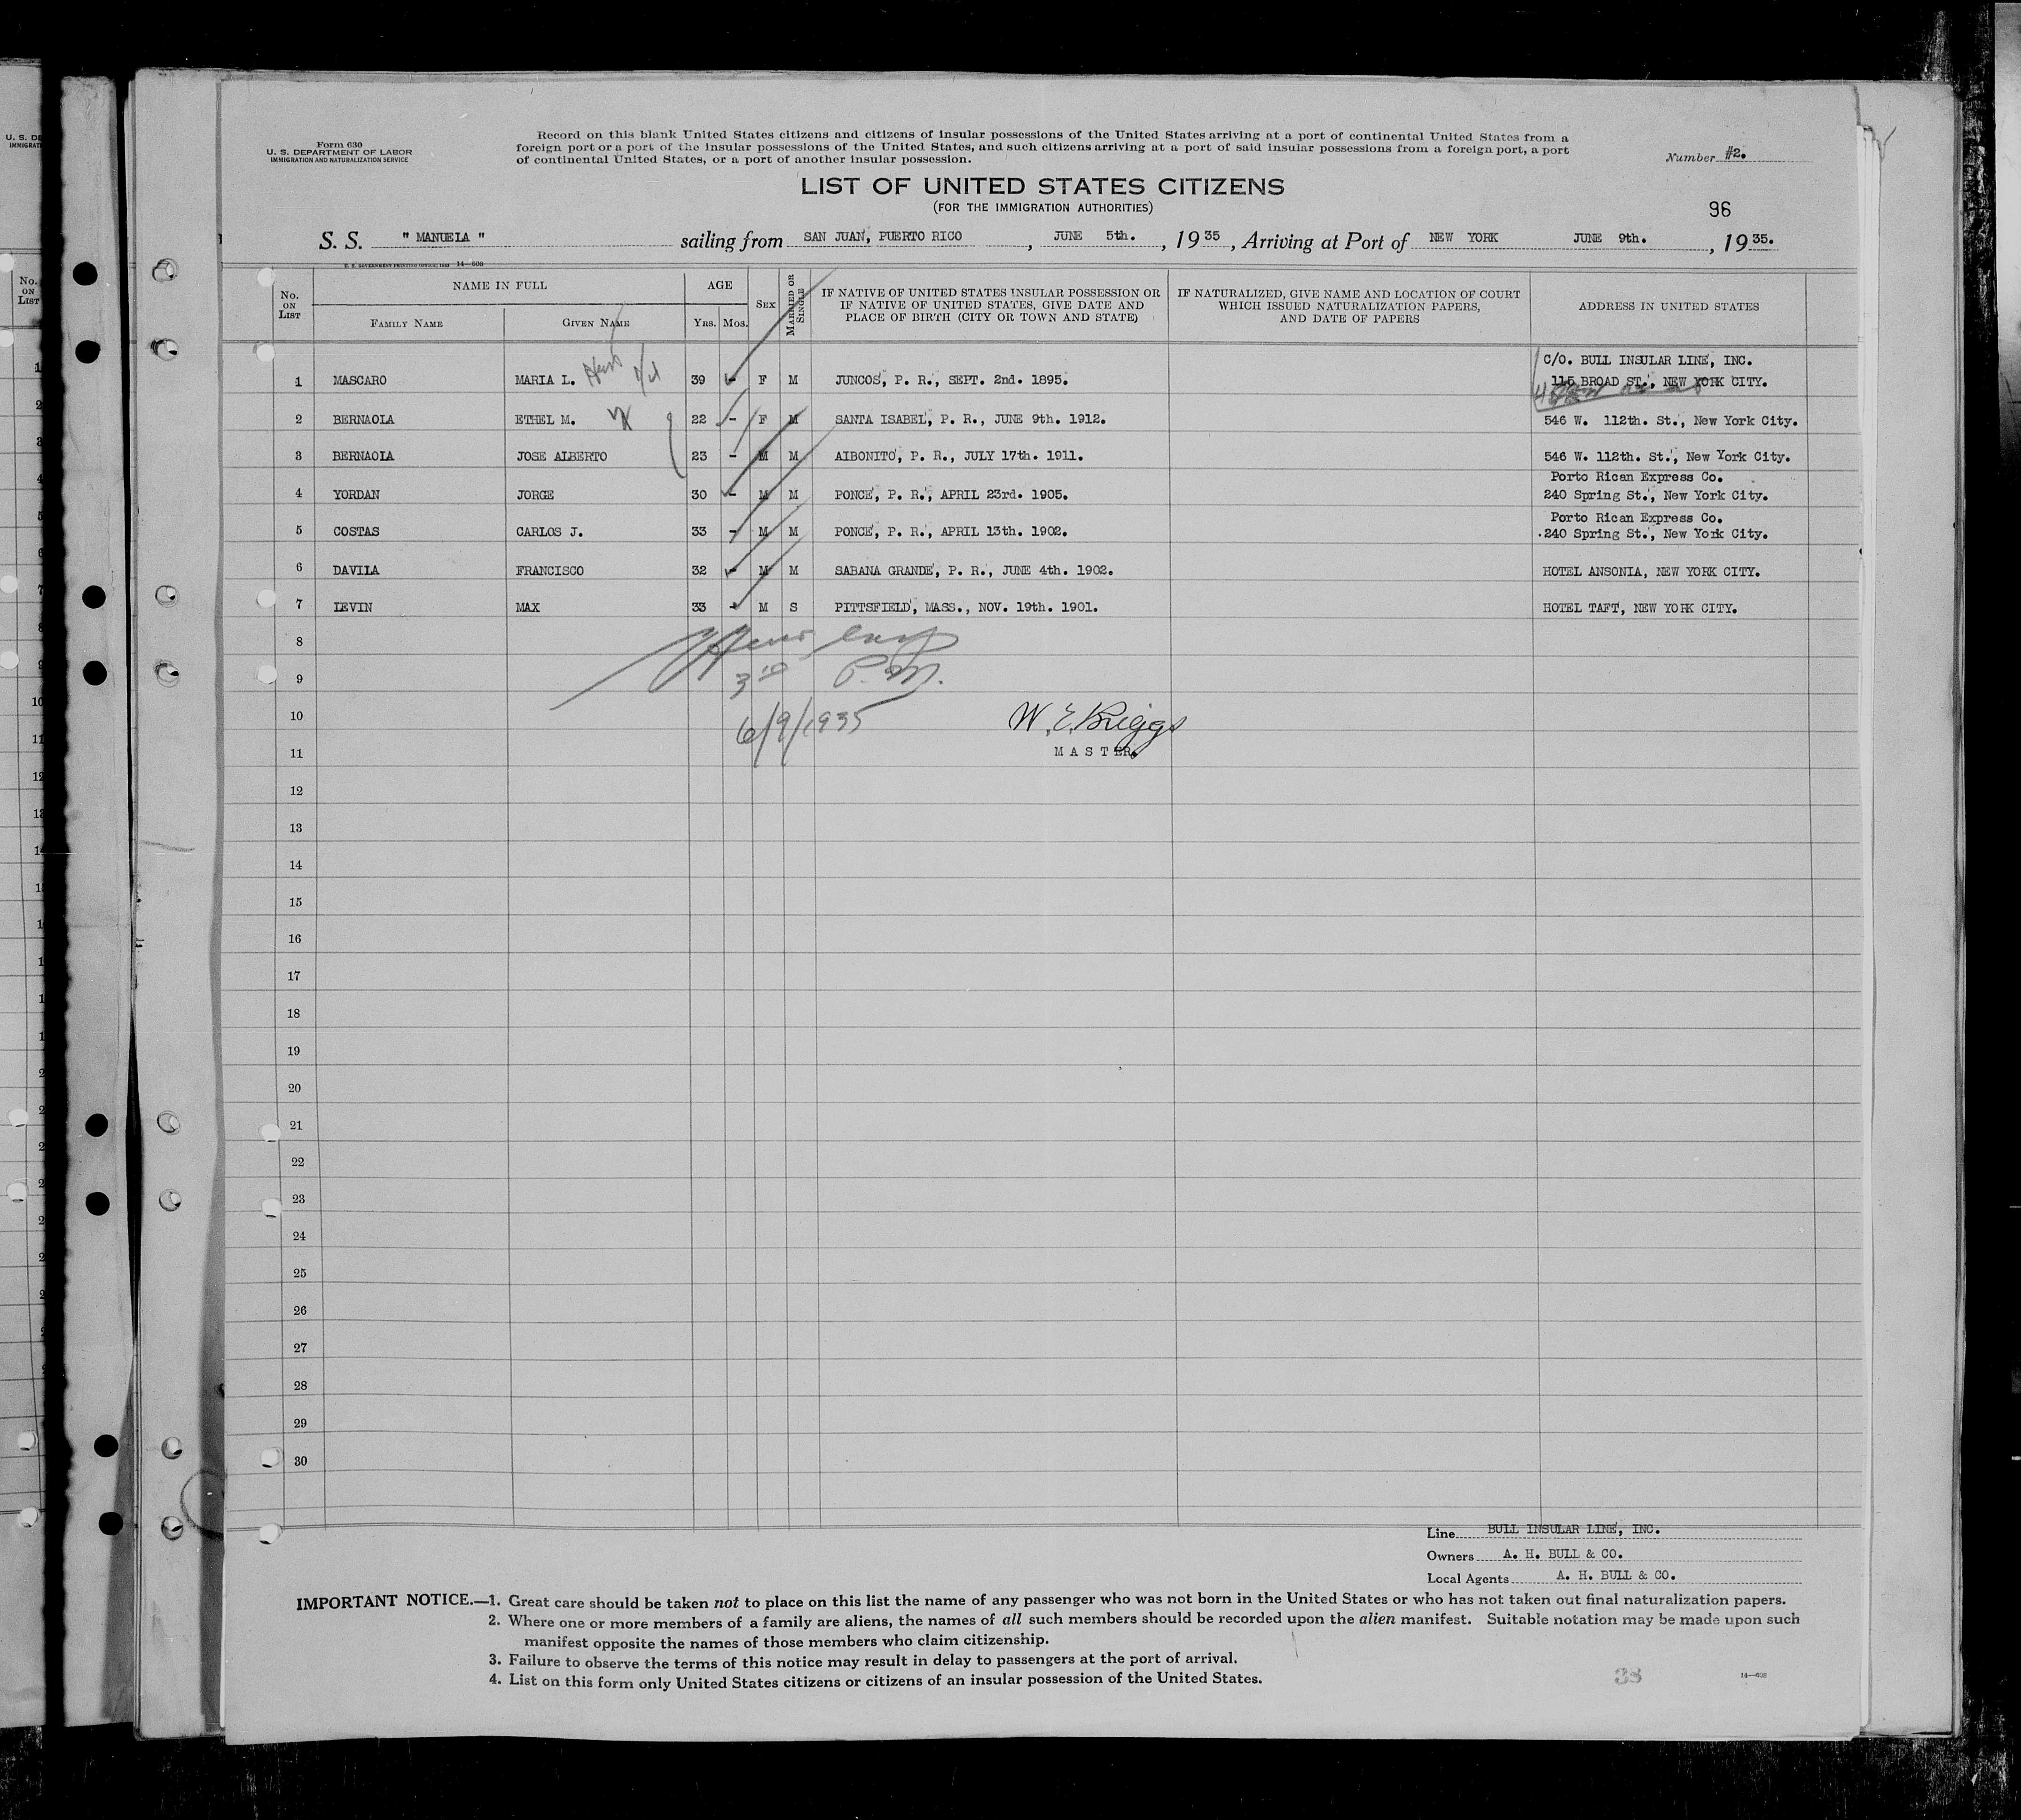 Form 630
U. S. DEPARTMENT OF LABOR
IMMIGRATION AND NATURALIZATION SERVICE
Record on this blank United States citizens and citizens of insular possessions of the United States arriving at a port of continental United States from a
foreign port or a port of the insular possessions of the United States, and such citizens arriving at a port of said insular possessions from a foreign port, a port
of continental United States, or a port of another insular possession.
Number #2.
LIST OF UNITED STATES CITIZENS
(FOR THE IMMIGRATION AUTHORITIES)
96
S. S. " MANUELA " sailing from SAN JUAN, PUERTO RICO , JUNE 5th. , 1935 , Arriving at Port of NEW YORK JUNE 9th. , 1935.
U. S. GOVERNMENT PRINTING OFFICE: 1933 14—608
No. ON LIST
NAME IN FULL
FAMILY NAME
GIVEN NAME
AGE
YRS. MOS.
SEX
MARRIED OR SINGLE
IF NATIVE OF UNITED STATES INSULAR POSSESSION OR
IF NATIVE OF UNITED STATES, GIVE DATE AND
PLACE OF BIRTH (CITY OR TOWN AND STATE)
IF NATURALIZED, GIVE NAME AND LOCATION OF COURT
WHICH ISSUED NATURALIZATION PAPERS,
AND DATE OF PAPERS
ADDRESS IN UNITED STATES
C/O. BULL INSULAR LINE, INC.
1 MASCARO MARIA L. 39 - F M JUNCOS, P. R., SEPT. 2nd. 1895. 115 BROAD ST., NEW YORK CITY.
2 BERNAOLA ETHEL M. 22 - F M SANTA ISABEL, P. R., JUNE 9th. 1912. 546 W. 112th. St., New York City.
3 BERNAOLA JOSE ALBERTO 23 - M M AIBONITO, P. R., JULY 17th. 1911. 546 W. 112th. St., New York City.
Porto Rican Express Co.
4 YORDAN JORGE 30 - M M PONCE, P. R., APRIL 23rd. 1905. 240 Spring St., New York City.
Porto Rican Express Co.
5 COSTAS CARLOS J. 33 - M M PONCE, P. R., APRIL 13th. 1902. 240 Spring St., New York City.
6 DAVILA FRANCISCO 32 - M M SABANA GRANDE, P. R., JUNE 4th. 1902. HOTEL ANSONIA, NEW YORK CITY.
7 LEVIN MAX 33 - M S PITTSFIELD, MASS., NOV. 19th. 1901. HOTEL TAFT, NEW YORK CITY.
8
9
3 10 P.M.
10
6/9/1935
W. E. Briggs
11
MASTER.
12
13
14
15
16
17
18
19
20
21
22
23
24
25
26
27
28
29
30
Line BULL INSULAR LINE, INC.
Owners A. H. BULL & CO.
Local Agents A. H. BULL & CO.
IMPORTANT NOTICE.—1. Great care should be taken not to place on this list the name of any passenger who was not born in the United States or who has not taken out final naturalization papers.
2. Where one or more members of a family are aliens, the names of all such members should be recorded upon the alien manifest. Suitable notation may be made upon such
manifest opposite the names of those members who claim citizenship.
3. Failure to observe the terms of this notice may result in delay to passengers at the port of arrival.
4. List on this form only United States citizens or citizens of an insular possession of the United States.
38
14—608